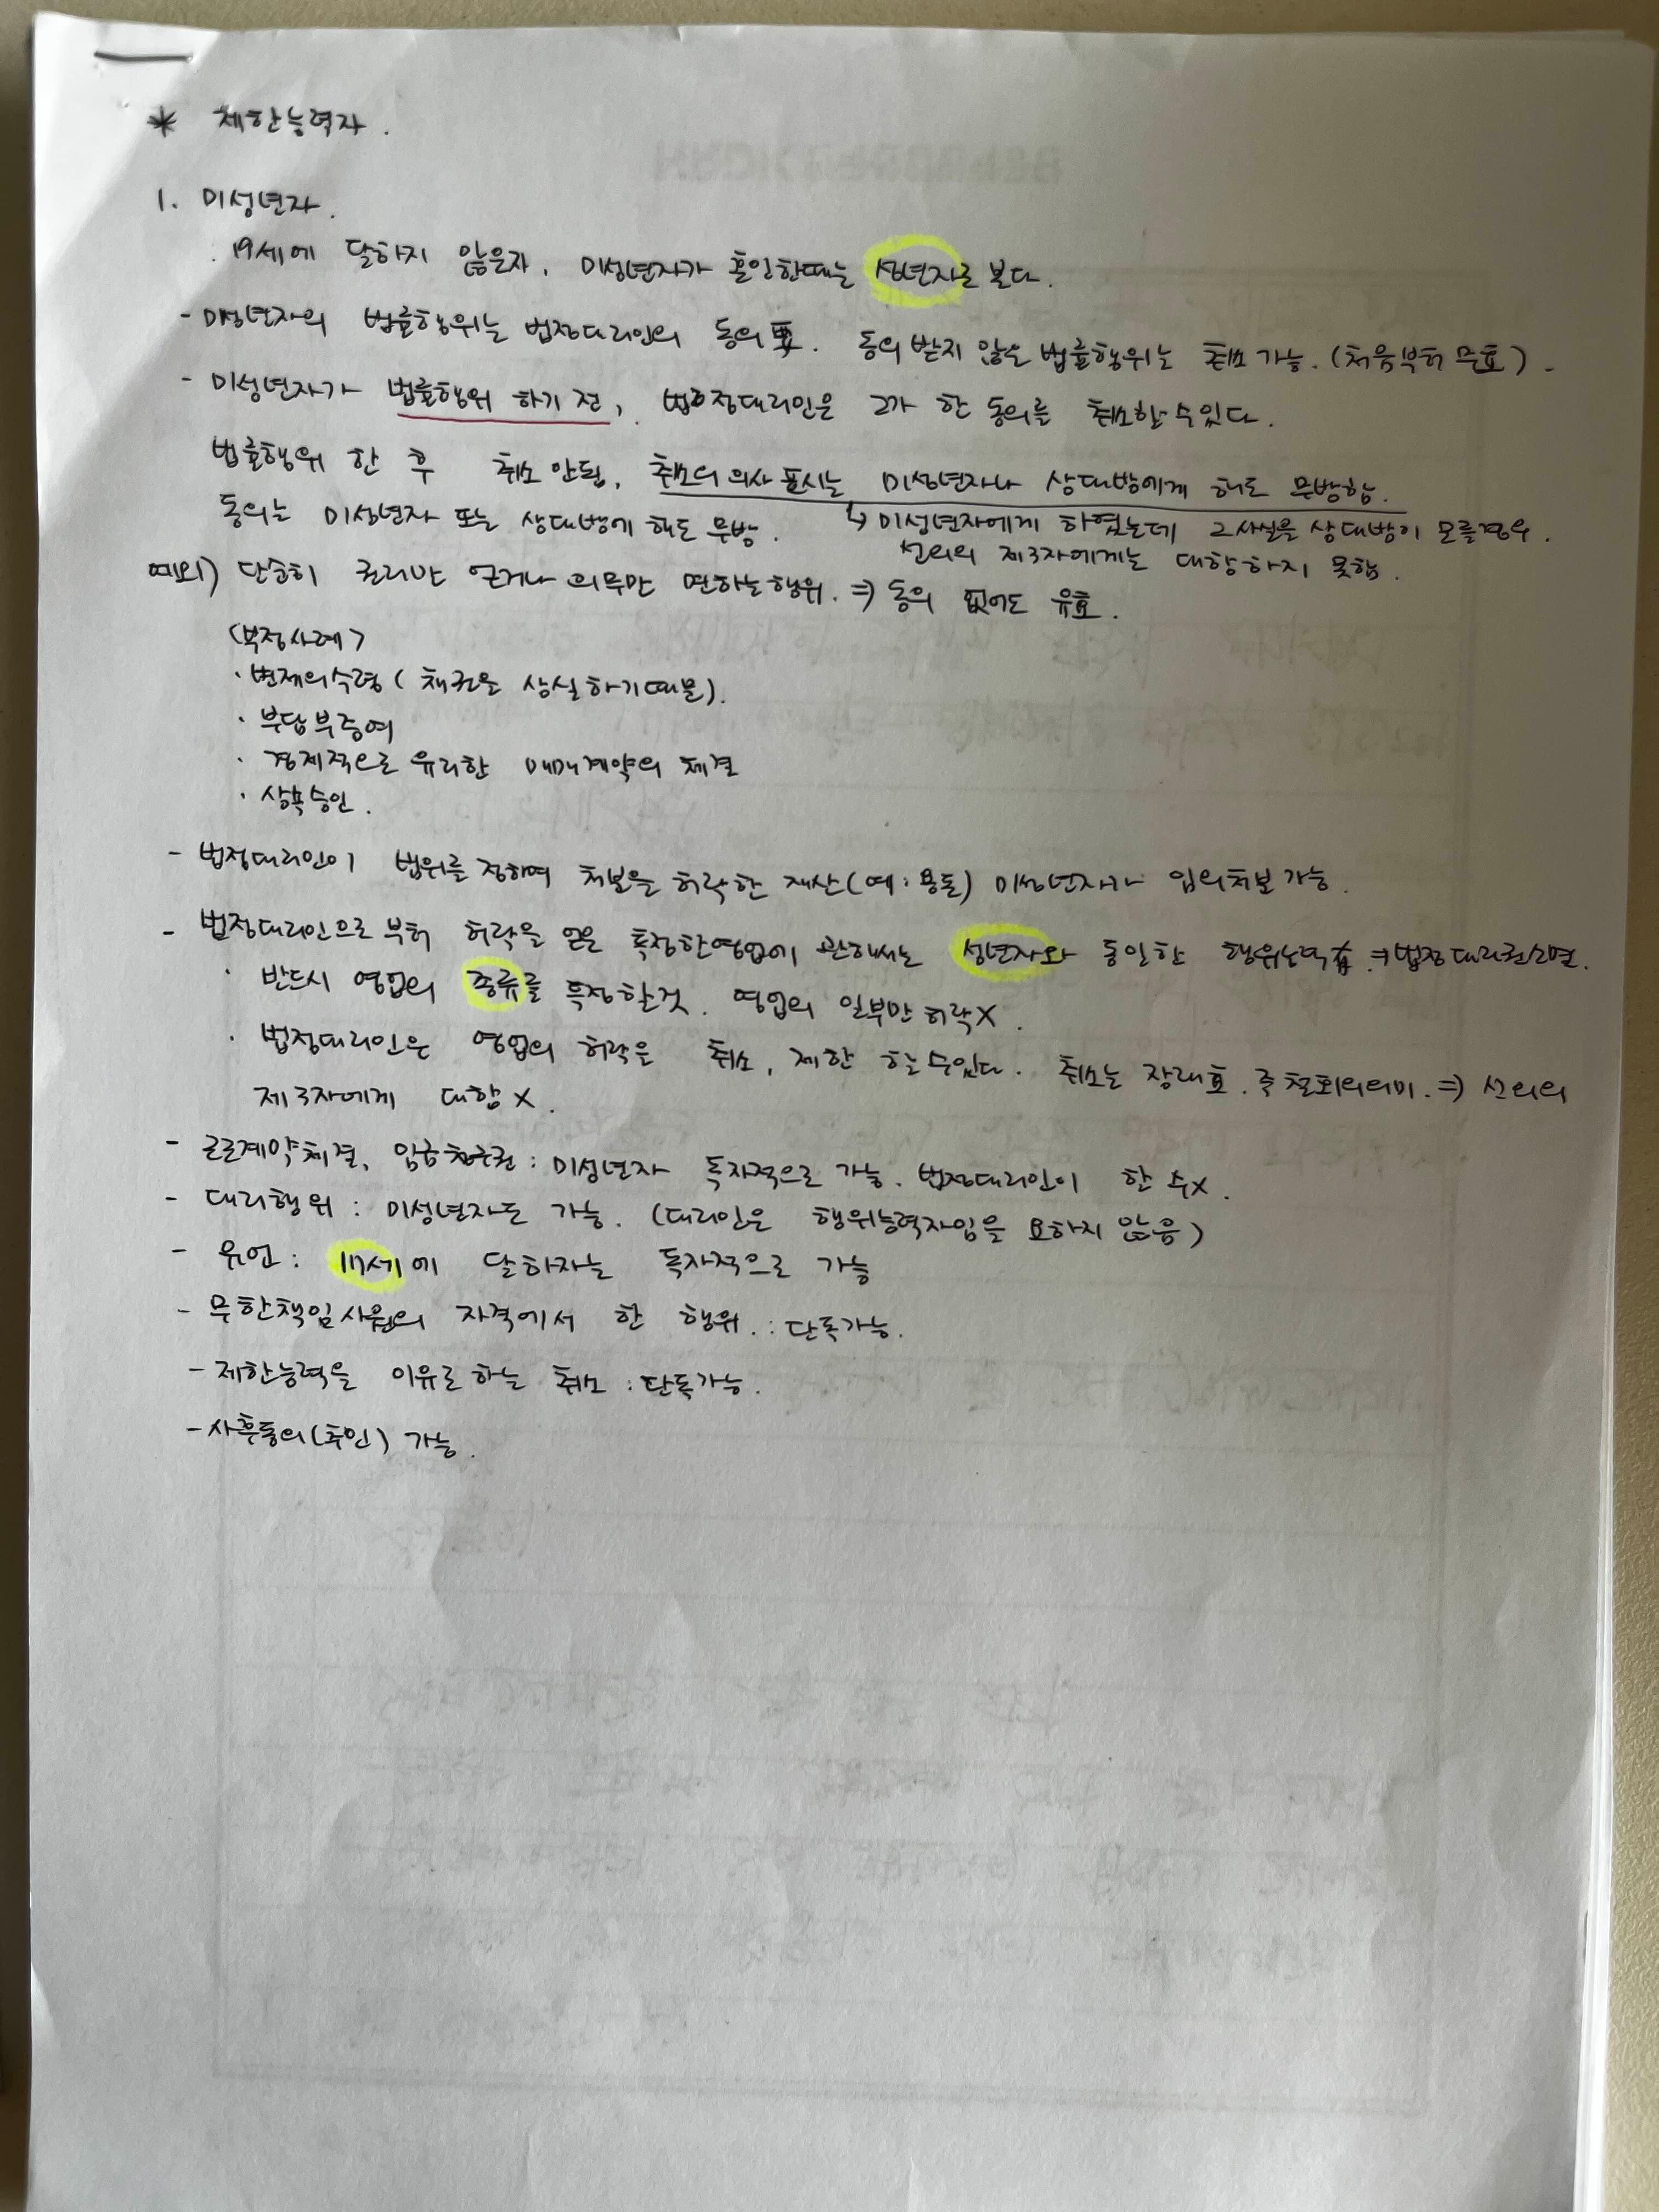 * 제한능력자.
1. 미성년자.
. 19세에 달하지 않은자, 미성년자가 혼인한때는 성년자로 본다.
- 미성년자의 법률행위는 법정대리인의 동의 要. 동의 받지 않은 법률행위는 취소 가능. (처음부터 무효).
- 미성년자가 법률행위 하기 전, 법정대리인은 그가 한 동의를 취소할 수 있다.
법률행위 한 후 취소 안됨, 취소의 의사 표시는 미성년자나 상대방에게 해도 무방함.
동의는 미성년자 또는 상대방에 해도 무방. ↳ 미성년자에게 하였는데 그사실을 상대방이 모를경우.
선의의 제3자에게는 대항하지 못함.
예외) 단순히 권리만 얻거나 의무만 면하는 행위. ⇒ 동의 없어도 유효.
<부정사례>
· 변제의 수령 (채권을 상실하기때문).
· 부담부증여
· 경제적으로 유리한 매매계약의 체결
· 상속승인.
- 법정대리인이 범위를 정하여 처분을 허락한 재산(예: 용돈) 미성년자가 임의처분 가능.
- 법정대리인으로 부터 허락을 얻은 특정한영업에 관해서는 성년자와 동일한 행위능력 有. ⇒ 법정대리권 소멸.
· 반드시 영업의 종류를 특정할것. 영업의 일부만 허락 X.
· 법정대리인은 영업의 허락을 취소, 제한 할 수 있다. 취소는 장래효. 즉 철회의의미. ⇒ 선의의
제3자에게 대항 X.
- 근로계약체결, 임금청구권 : 미성년자 독자적으로 가능. 법정대리인이 할 수 X.
- 대리행위 : 미성년자도 가능. (대리인은 행위능력자임을 요하지 않음)
- 유언 : 17세에 달하자는 독자적으로 가능
- 무한책임사원의 자격에서 한 행위. : 단독가능.
- 제한능력을 이유로 하는 취소 : 단독가능.
- 사후동의(추인) 가능.